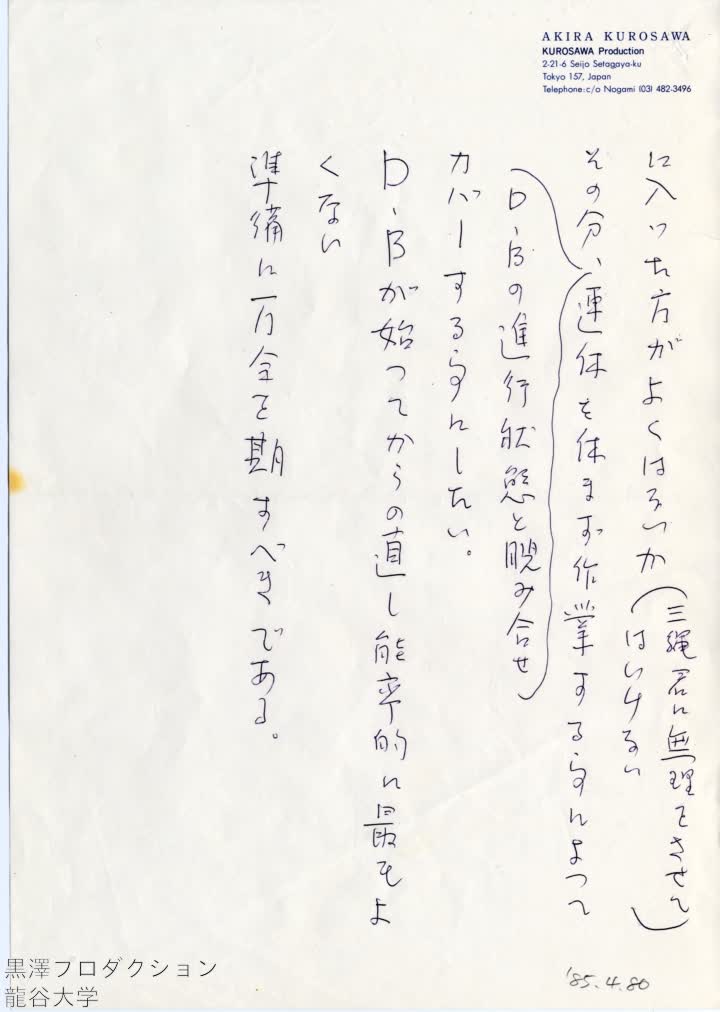 AKIRA KUROSAWA
KUROSAWA Production
2-21-6 Seijo Setagaya-ku
Tokyo 157, Japan
Telephone:c/o Nogami (03) 482-3496
に入った方がよくはないか(三縄君に無理をさせて
はいけない)
その分、連休を休まず作業する事によって
(D・Bの進行状態と睨み合せ)
カバーする事にしたい。
D・Bが始ってからの直し能率的に最もよ
くない
準備に万全を期すべきである。
'85.4.30
黒澤プロダクション
龍谷大学